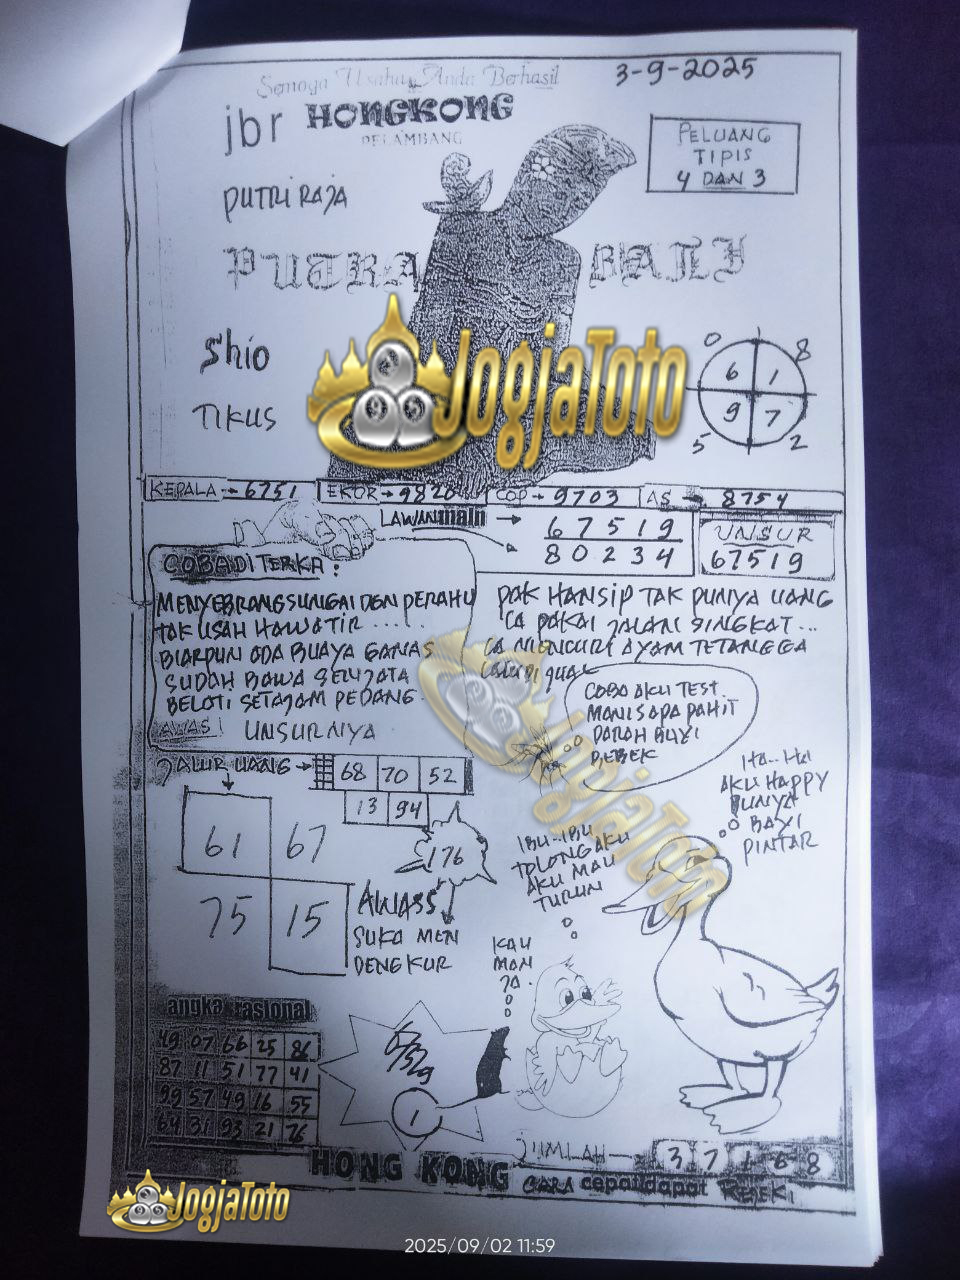 Semoga Usaha Anda Berhasil
3-9-2025
jbr HONGKONG
PELAMBANG
PELUANG
TIPIS
4 DAN 3
PUTRI RAJA
PUTRA BALI
Shio
TIKUS
JogjaToto
0 8
6 1
9 7
5 2
KEPALA → 6751
EKOR → 9820
COP → 9703
AS → 8754
LAWAN main →
6 7 5 1 9
8 0 2 3 4
UNSUR
67519
COBA DITERKA :
MENYEBRANG SUNGAI DGN PERAHU
TAK USAH HAWATIR ......
BIARPUN ADA BUAYA GANAS
SUDAH BAWA SENJATA
BELATI SETAJAM PEDANG
AWAS! UNSURNYA
PAK HANSIP TAK PUNYA UANG
IA PAKAI JALAN SINGKAT...
IA MENCURI AYAM TETANGGA
COBA AKU TEST
MANIS APA PAHIT
DARAH BAYI
BEBEK
JALUR UANG →
68 70 52
13 94
61 67
75 15
176
AWASS
SUKA MEN
DENGKUR
IBU-IBU
TOLONG AKU
AKU MAU
TURUN
Ha..Ha
AKU HAPPY
PUNYA
BAYI
PINTAR
KAU
MAN
JA.
JogjaToto
angka rasional
49 07 66 25 86
87 11 51 77 41
99 57 49 16 55
64 31 93 21 76
1
JUMLAH → 3 7 1 6 8
HONG KONG
CARA cepat dapat REJEKI
JogjaToto
2025/09/02 11:59